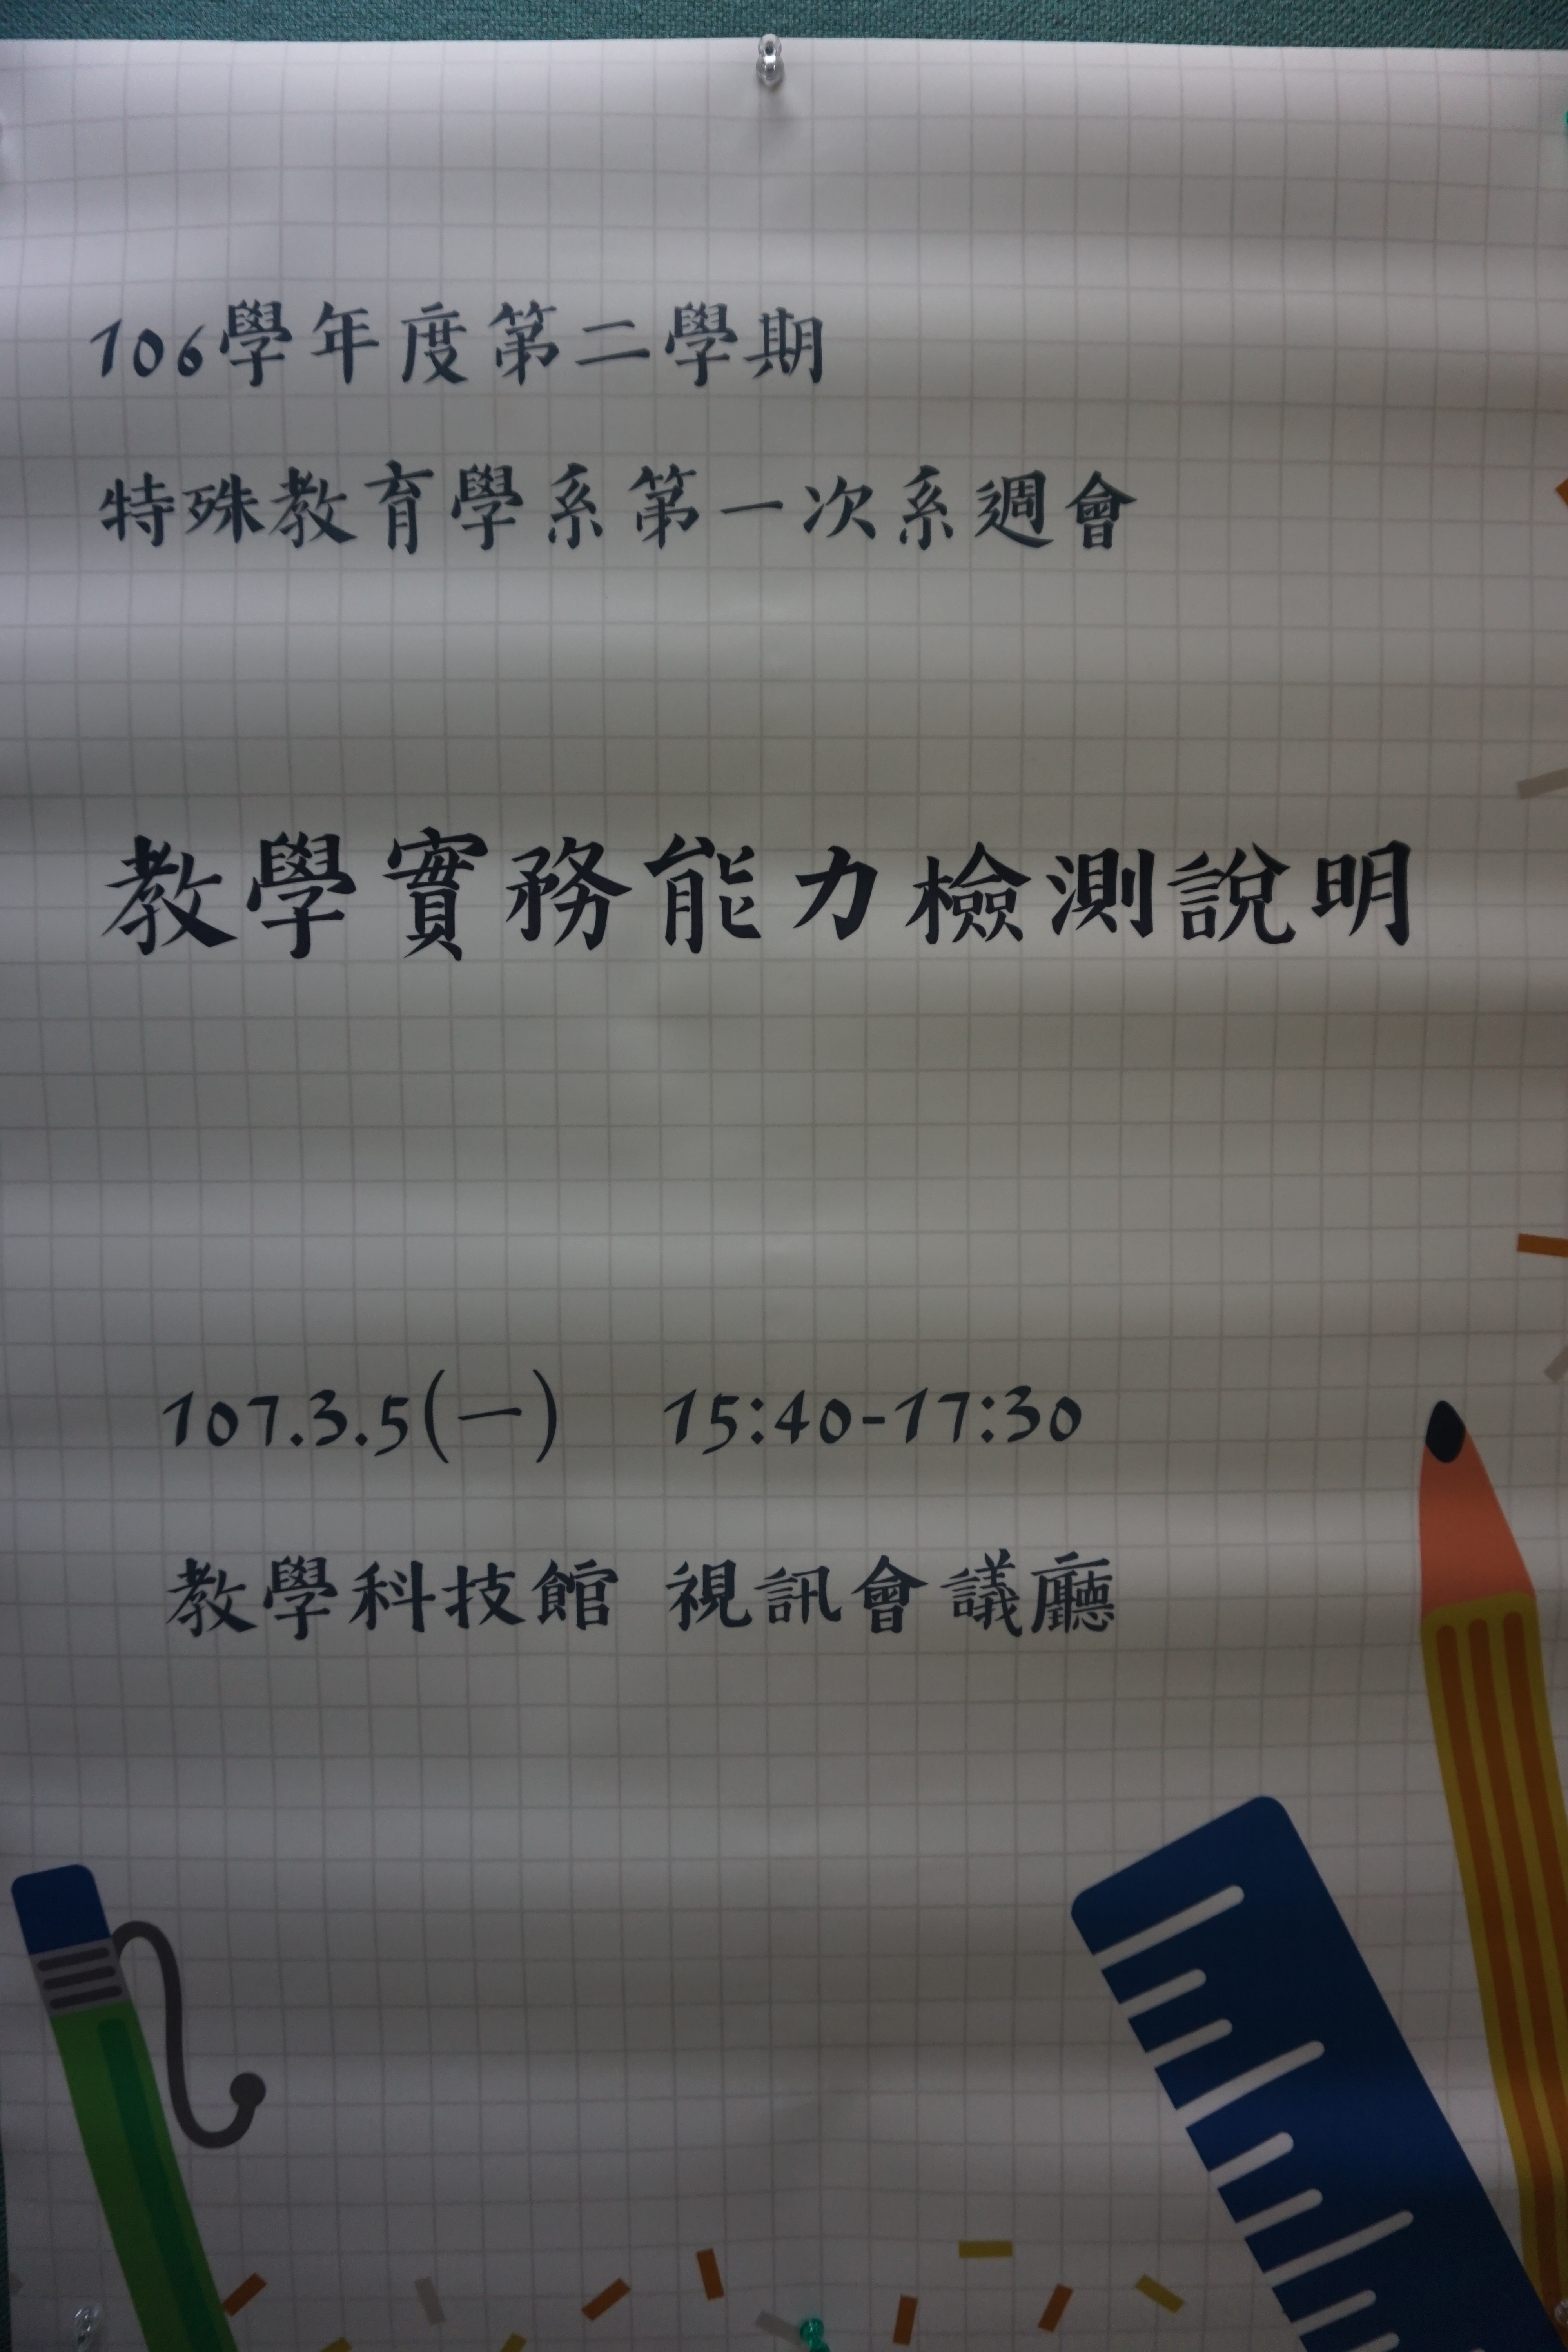 106學年度第二學期
特殊教育學系第一次系週會
教學實務能力檢測說明
107.3.5(一) 15:40-17:30
教學科技館 視訊會議廳